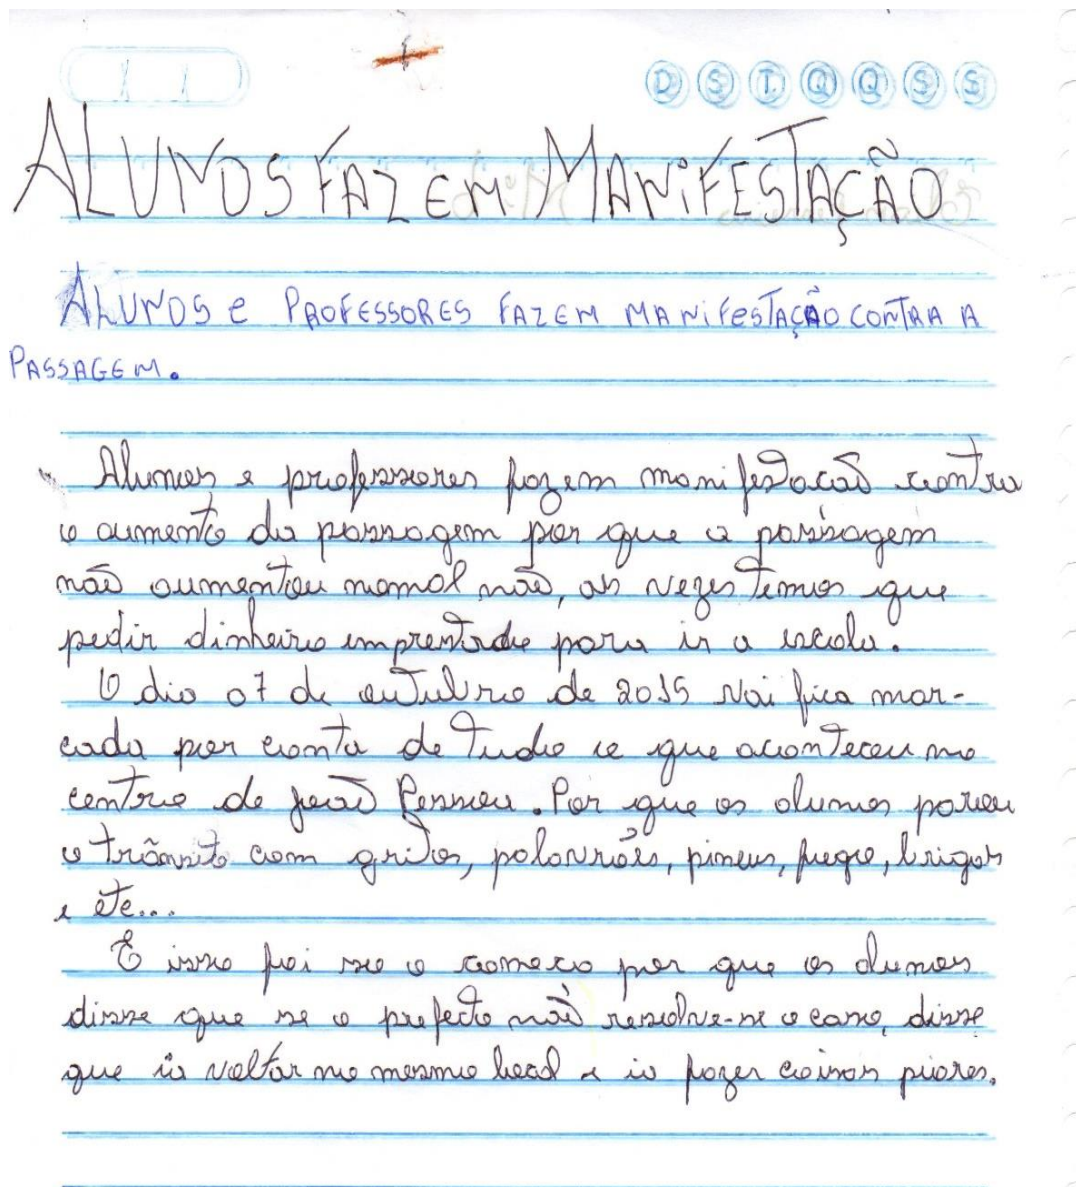 D S T Q Q S S
ALUNOS FAZEM MANIFESTAÇÃO
ALUNOS e PROFESSORES FAZEM MANIFESTAÇÃO CONTRA A
PASSAGEM.
Alunos e professores fazem manifestacaõ contra
o aumento da passagem por que a passagem
naõ aumentou nomal naõ, as vezes temos que
pedir dinheiro emprentado para ir a escola.
O dia 07 de outubro de 2015 vai fica mar-
cada por conta de tudo o que aconteceu no
centro de joaõ Pessoa. Por que os alunos parou
o trânsito com gritos, palavrões, pineus, fogo, brigas
e ete...
E isso foi so o comeco por que os alunos
disse que se o prefeito naõ resolve-se o caso, disse
que ia voltar no mesmo local e ia fazer coisas piores.